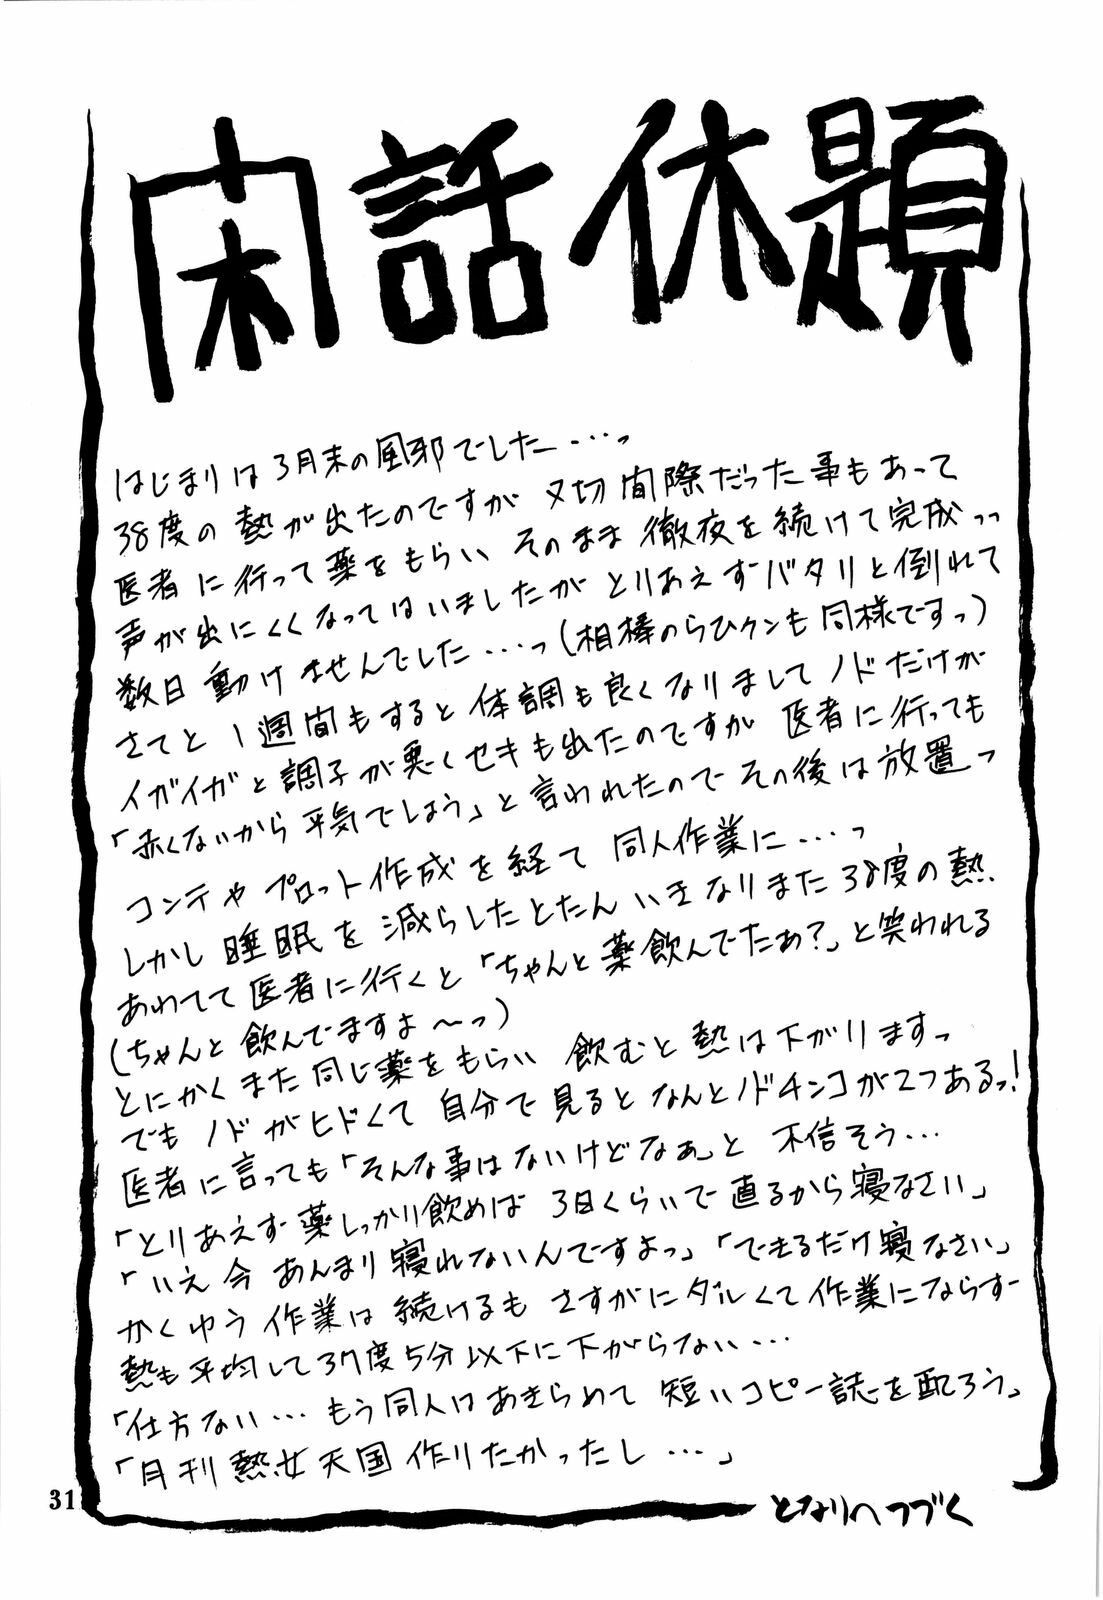 閑話休題
はじまりは3月末の風邪でした…っ
38度の熱が出たのですが〆切間際だった事もあって
医者に行って薬をもらい そのまま徹夜を続けて完成っっ
声が出にくくなってはいましたが とりあえずバタリと倒れて
数日動けませんでした…っ(相棒のらひクンも同様ですっ)
さてと1週間もすると体調も良くなりまして ノドだけが
イガイガと調子が悪くセキも出たのですが 医者に行っても
「赤くないから平気でしょう」と言われたので その後は放置っ
コンテやプロット作成を経て 同人作業に…っ
しかし睡眠を減らしたとたん いきなりまた38度の熱
あわてて医者に行くと「ちゃんと薬飲んでたぁ?」と笑われる
(ちゃんと飲んでますよ～っ)
とにかくまた同じ薬をもらい 飲むと熱は下がりますっ
でもノドがヒドくて 自分で見ると なんとノドチンコが2つあるっ!
医者に言っても「そんな事はないけどなぁ」と 不信そう…
「とりあえず薬しっかり飲めば 3日くらいで直るから寝なさい」
「いえ今あんまり寝れないんですよっ」「できるだけ寝なさい」
かくゆう作業は続けるも さすがにダルくて作業にならず
熱も平均して37度5分以下に下がらない…
「仕方ない…もう同人はあきらめて 短いコピー誌を配ろう」
「月刊熱女天国作りたかったし…」
31
となりへつづく